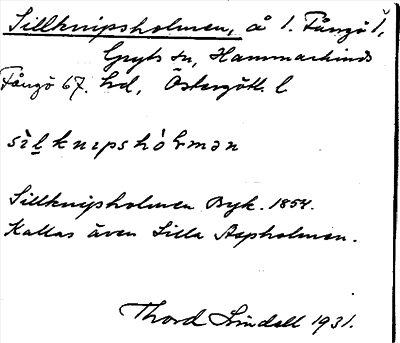 Sillknipsholmen, å l. Fångö I,
Gryts sn, Hammarkinds
Fångö 67. hd, Östergötl. l
sìl̥knɩpshòlmən
Sillknipsholmen Byk. 1854.
Kallas även Lilla Aspholmen.
Thord Lindell 1931.